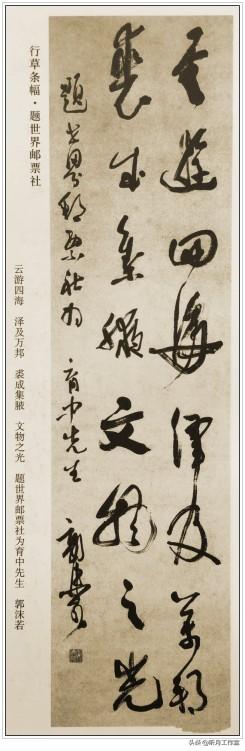 云遊四海澤及萬邦
裘成集腋文物之光
題世界郵票社为育中先生 郭沫若
行草条幅·题世界邮票社
云游四海 泽及万邦 裘成集腋 文物之光 题世界邮票社为育中先生 郭沫若
头条@昕月工作室